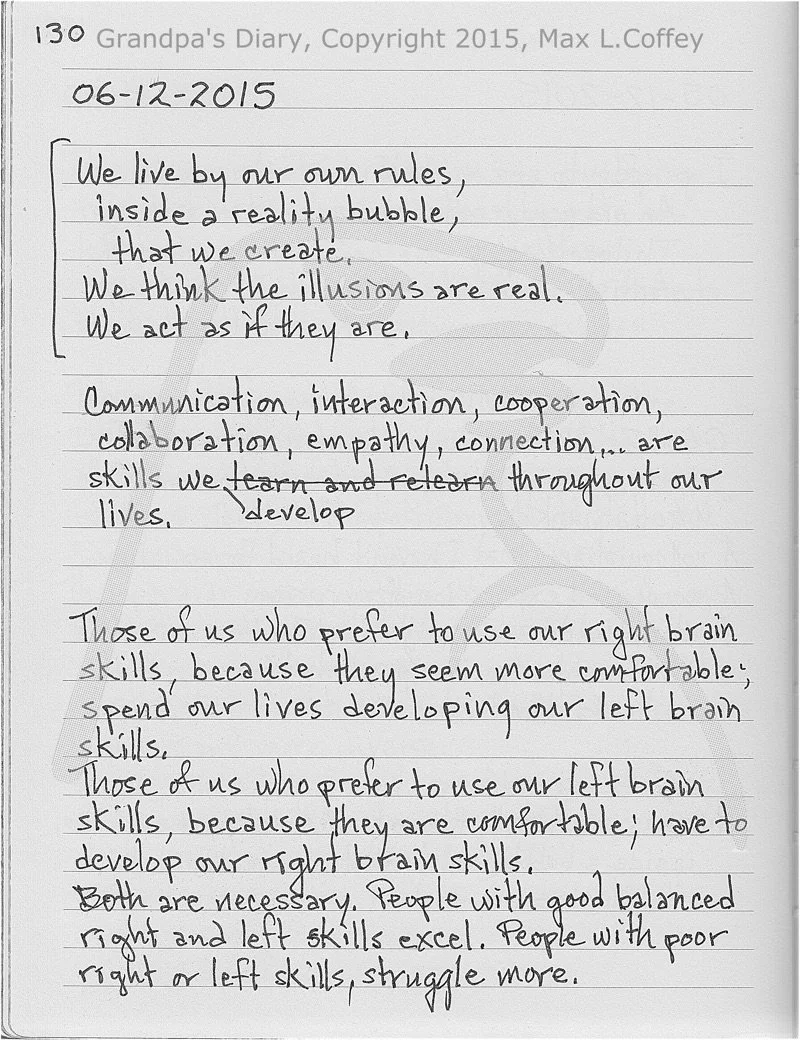 130 Grandpa's Diary, Copyright 2015, Max L.Coffey
06-12-2015
We live by our own rules,
inside a reality bubble,
that we create.
We think the illusions are real.
We act as if they are.
Communication, interaction, cooperation,
collaboration, empathy, connection,... are
skills we learn and relearn throughout our
lives. develop
Those of us who prefer to use our right brain
skills, because they seem more comfortable;
spend our lives developing our left brain
skills.
Those of us who prefer to use our left brain
skills, because they are comfortable; have to
develop our right brain skills.
Both are necessary. People with good balanced
right and left skills excel. People with poor
right or left skills, struggle more.